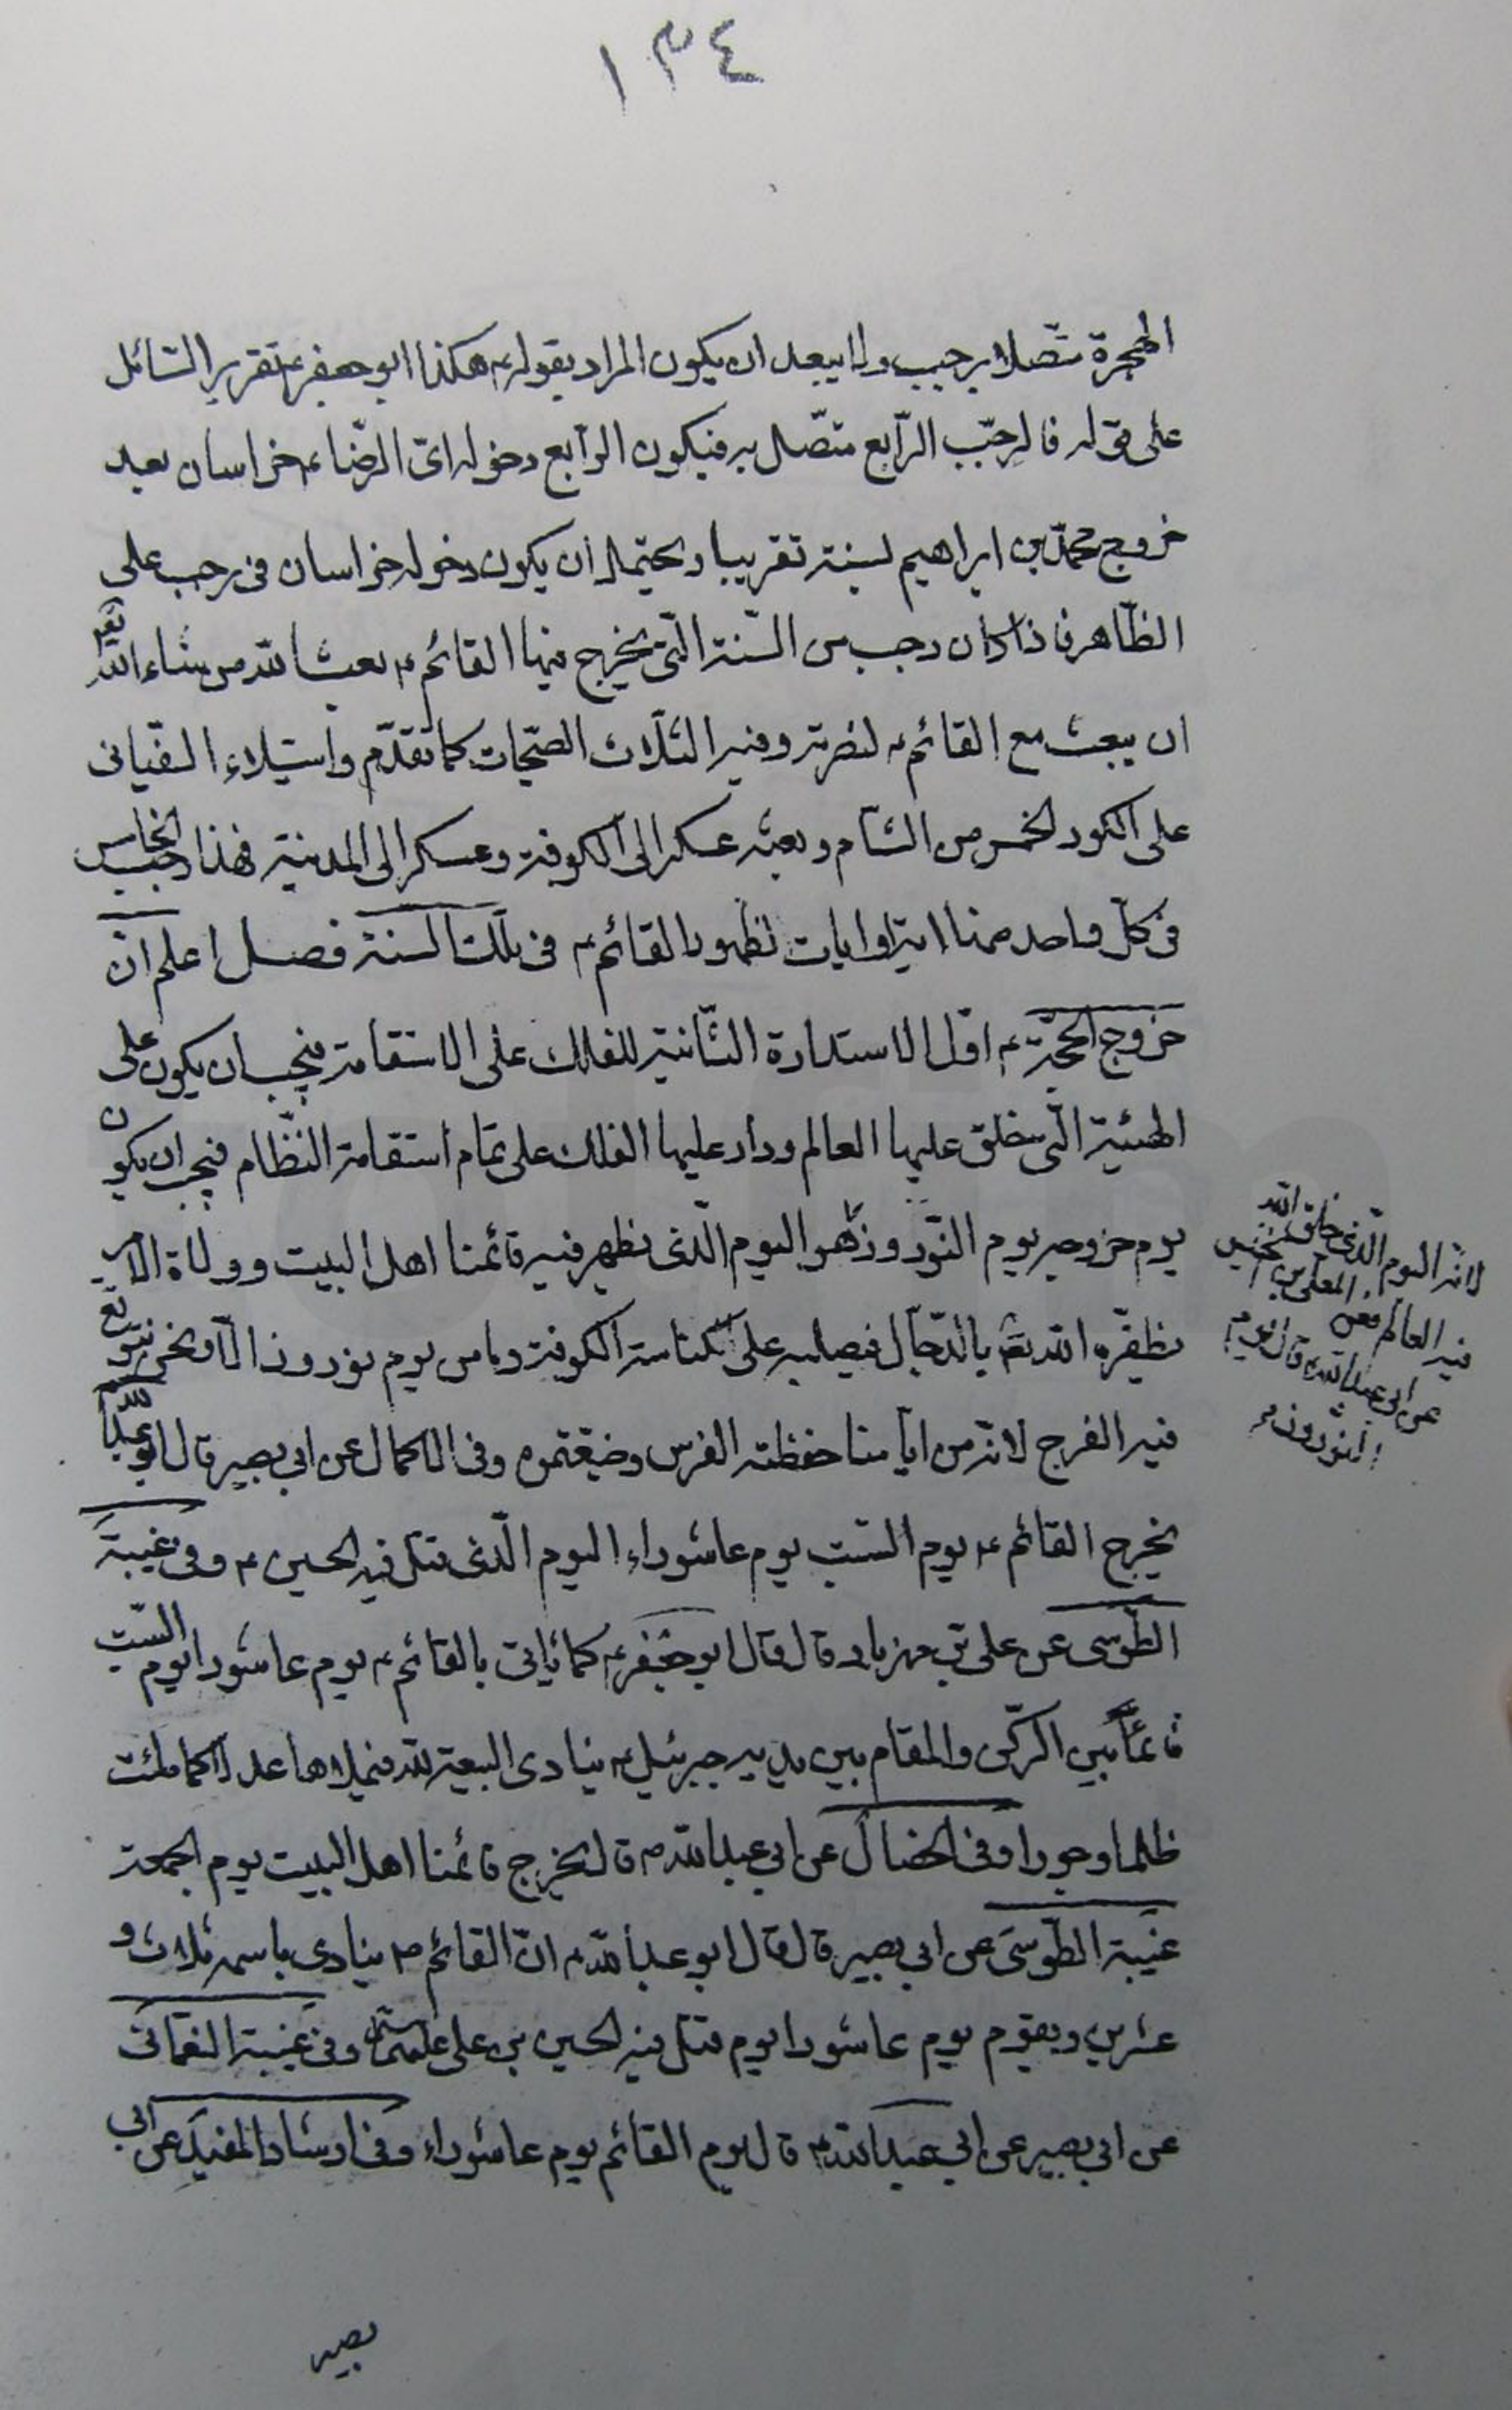 ١٣٤
الهجرة متّصلا برجب ولا يبعد ان يكون المراد بقوله ع هكذا ابو جعفر ع تقرير السّائل
على قوله فالرجب الرّابع متّصل به فيكون الرّابع دخوله اى الرّضاء ع خراسان بعد
خروج محمّد بن ابراهيم لسنة تقريبا ويحتمل ان يكون دخوله خراسان فى رجب على
الظّاهر فاذا كان رجب من السّنة الّتى يخرج فيها القائم ع بعث الله من شاء الله تع
ان يبعث مع القائم ع لنصرته وفيه الثلاث الصّيحات كما تقدّم واستيلاء السّفيانى
على الكور الخمس من الشّام وبعثه عسكرا الى الكوفة وعسكرا الى المدينة فهذا رجب الخامس
فى كلّ واحد منها اية او ايات لظهور القائم ع فى تلك السنة فصل اعلم انّ
خروج الحجّة ع اوّل الاستدارة الثّانية للفلك على الاستقامة فيجب ان يكون على
الهيئة الّتى خلق عليها العالم ودار عليها الفلك على تمام استقامة النّظام فيجب ان يكون
يوم خروجه يوم النّوروز هو اليوم الّذى يظهر فيه قائمنا اهل البيت وولاة الامر
لانّه اليوم الّذى خلق الله
فيه العالم فعن المعلّى بن خنيس
عن ابى عبد الله ع قال يوم
النّوروز
يظفّره الله تع بالدّجّال فيصلبه على كناسة الكوفة وما من يوم نوروز الّا ونحن نتوقع
فيه الفرج لانّه من ايّامنا حفظته الفرس وضيّعتموه وفى الاكمال عن ابى بصير قال ابو عبد الله ع
يخرج القائم ع يوم السّبت يوم عاشوراء اليوم الّذى قتل فيه الحسين ع وفى غيبة
الطّوسى عن على بن مهزيار قال قال ابو جعفر ع كانّى بالقائم ع يوم عاشورا يوم السّبت
قائما بين الركن والمقام بين يديه جبرئيل ع ينادى البيعة لله فيملاها عدلا كما ملئت
ظلما وجورا وفى الخصال عن ابى عبد الله ع قال يخرج قائمنا اهل البيت يوم الجمعة
غيبة الطّوسى عن ابى بصير قال قال ابو عبد الله ع انّ القائم ص ينادى باسمه ثلاث و
عشرين ويقوم يوم عاشورا يوم قتل فيه الحسين بن على علیهما السلام وفى غيبة النعمانى
عن ابى بصير عن ابى عبد الله ع قال يوم القائم يوم عاشوراء وفى ارشاد المفيد عن ابى
بصير